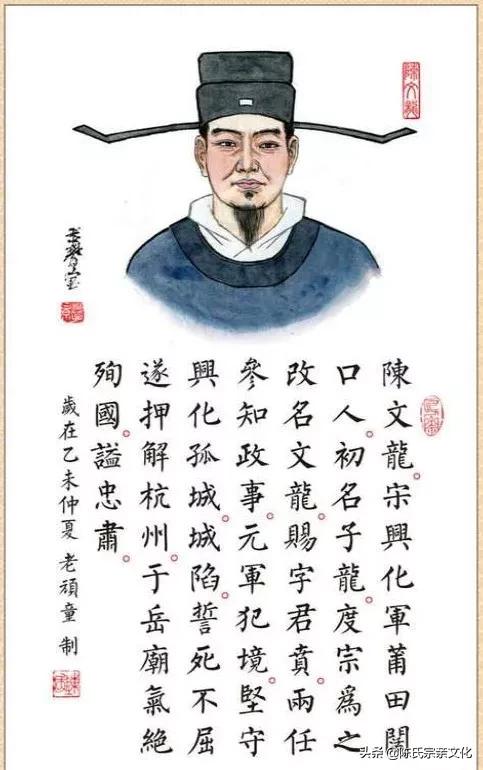 陳文龍
陳文龍。宋興化軍莆田闊
口人。初名子龍。度宗爲之
改名文龍。賜字君賁。兩任
參知政事。元軍犯境。堅守
興化孤城。城陷。誓死不屈
遂押解杭州。于岳廟氣絕
殉國。謚忠肅。
歲在乙未仲夏 老頑童 制
头条 @陈氏宗亲文化